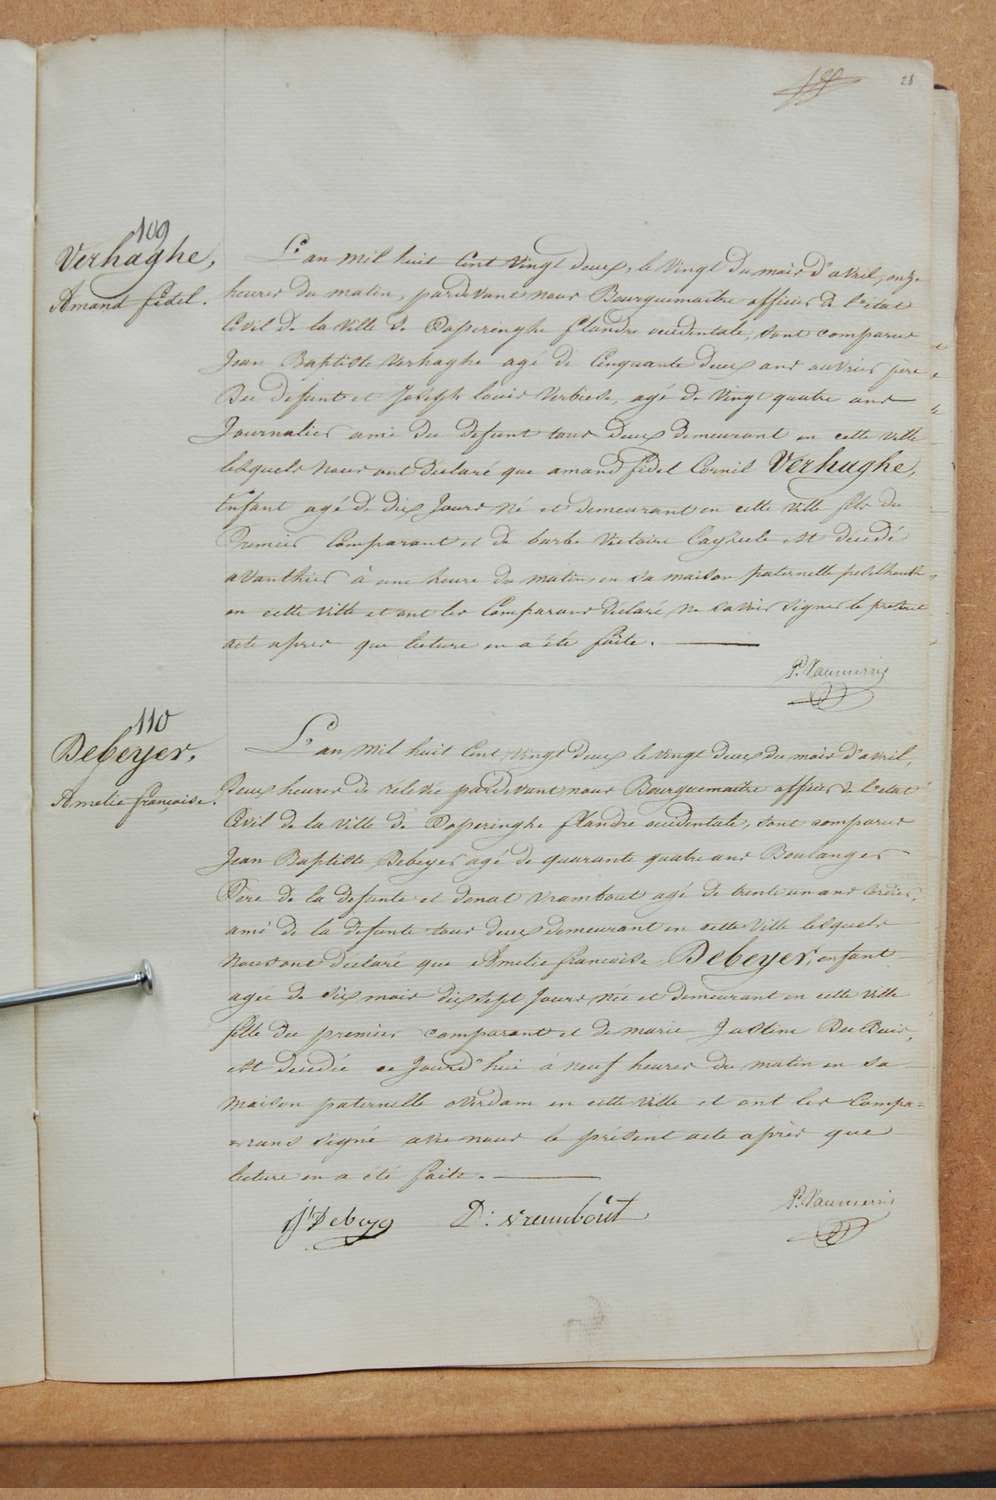 28
109
Verhaghe,
Amand fidel.
L'an mil huit Cent Vingt deux, le Vingt du mois d'avril, onze
heures du matin, pardevant nous Bourguemaitre officier de l'etat
Civil de la Ville de Poperinghe flandre occidentale, sont comparus
Jean Baptiste Verhaghe agé de Cinquante deux ans ouvrier père
du defunt et Joseph Louis Verbieke, agé de Vingt quatre ans
Journalier ami du defunt tous deux demeurant en cette ville
lesquels nous ont declaré que amand fidel Cornil Verhaghe,
Enfant agé de dix Jours né et demeurant en cette ville fils du
Premier Comparant et de barbe Victoire est decedé
avanthier à une heure du matin en sa maison paternelle
en cette ville et ont les Comparans declaré ne savoir signer le présent
acte apres que lecture en a été faite.
110
Debeyer,
Amelie françoise.
L'an mil huit Cent Vingt deux le vingt deux du mois d'avril,
Deux heures de relevée pardevant nous Bourguemaitre officier de l'etat
Civil de la Ville de Poperinghe flandre occidentale, sont comparus
Jean Baptiste Debeyer agé de quarante quatre ans Boulanger
Père de la defunte et donat Vrambout agé de trente un ans
ami de la defunte tous deux demeurant en cette Ville lesquels
nous ont declaré que Amelie francoise Debeyer, enfant
agée de six mois dix sept Jours née et demeurant en cette ville
fille du premier comparant et de marie Justine
est decedée ce Jourd'hui à neuf heures du matin en sa
maison paternelle overdam en cette ville et ont les Compa=
rans signé avec nous le présent acte après que
lecture en a été faite.
D: Vrambout